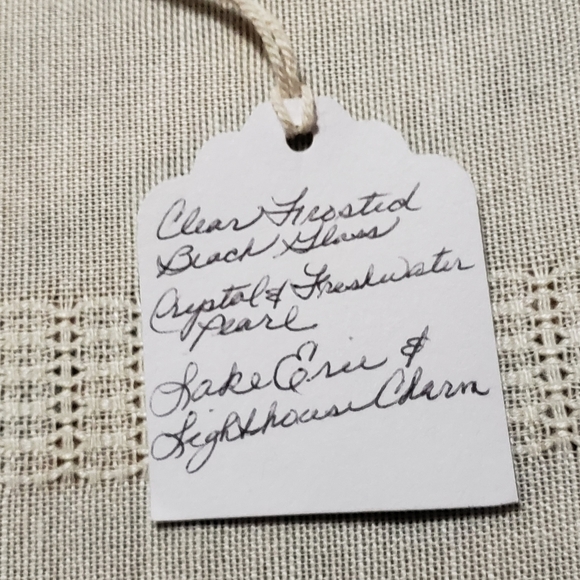 Clear Frosted
Beach Glass
Crystal & Freshwater
Pearl
Lake Erie &
Lighthouse Charm